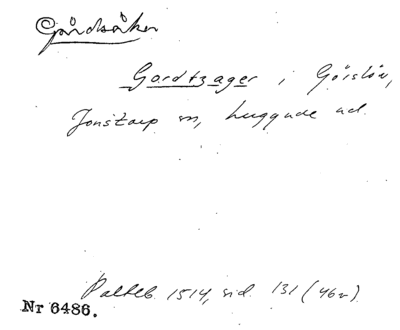 Gårdsåker
Gordtzager i Görslöv,
Jonstorp sn, huggude ud.
Palteb. 1514, sid. 131 (46v).
Nr 6486.